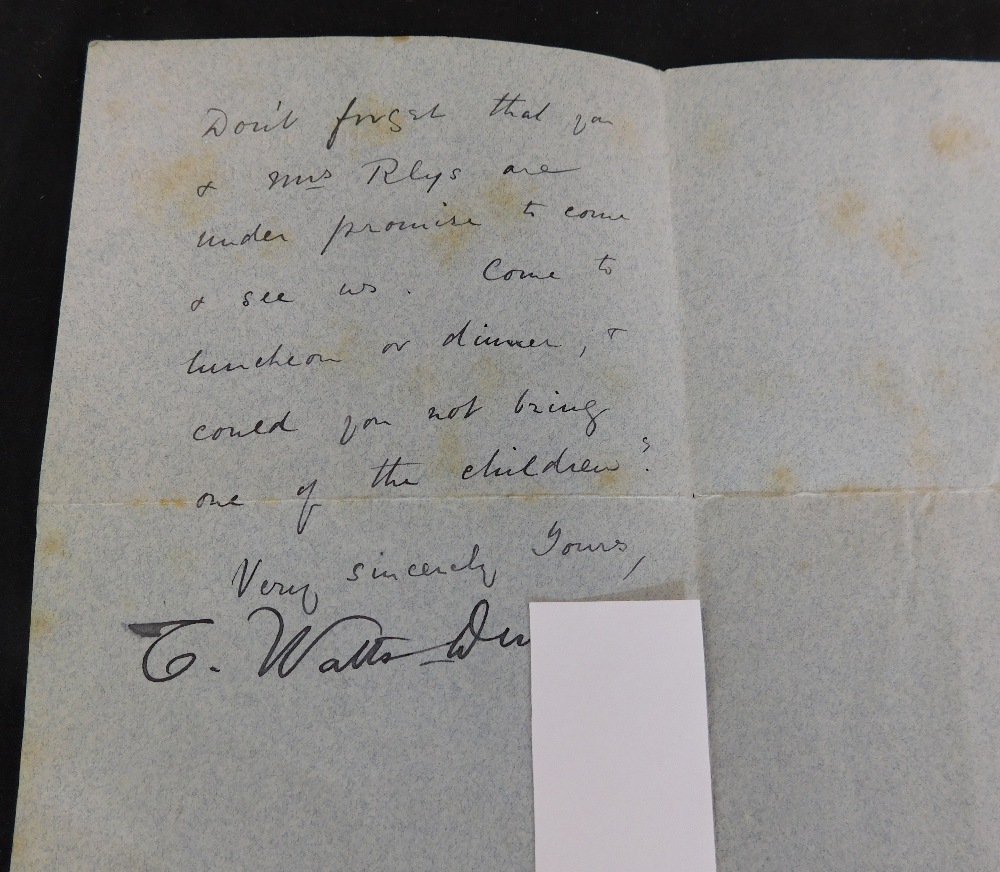 Don't forget that you
& Mrs Rhys are
under promise to come
& see us. Come to
luncheon or dinner, &
could you not bring
one of the children?
Very sincerely Yours,
T. Watts-Du